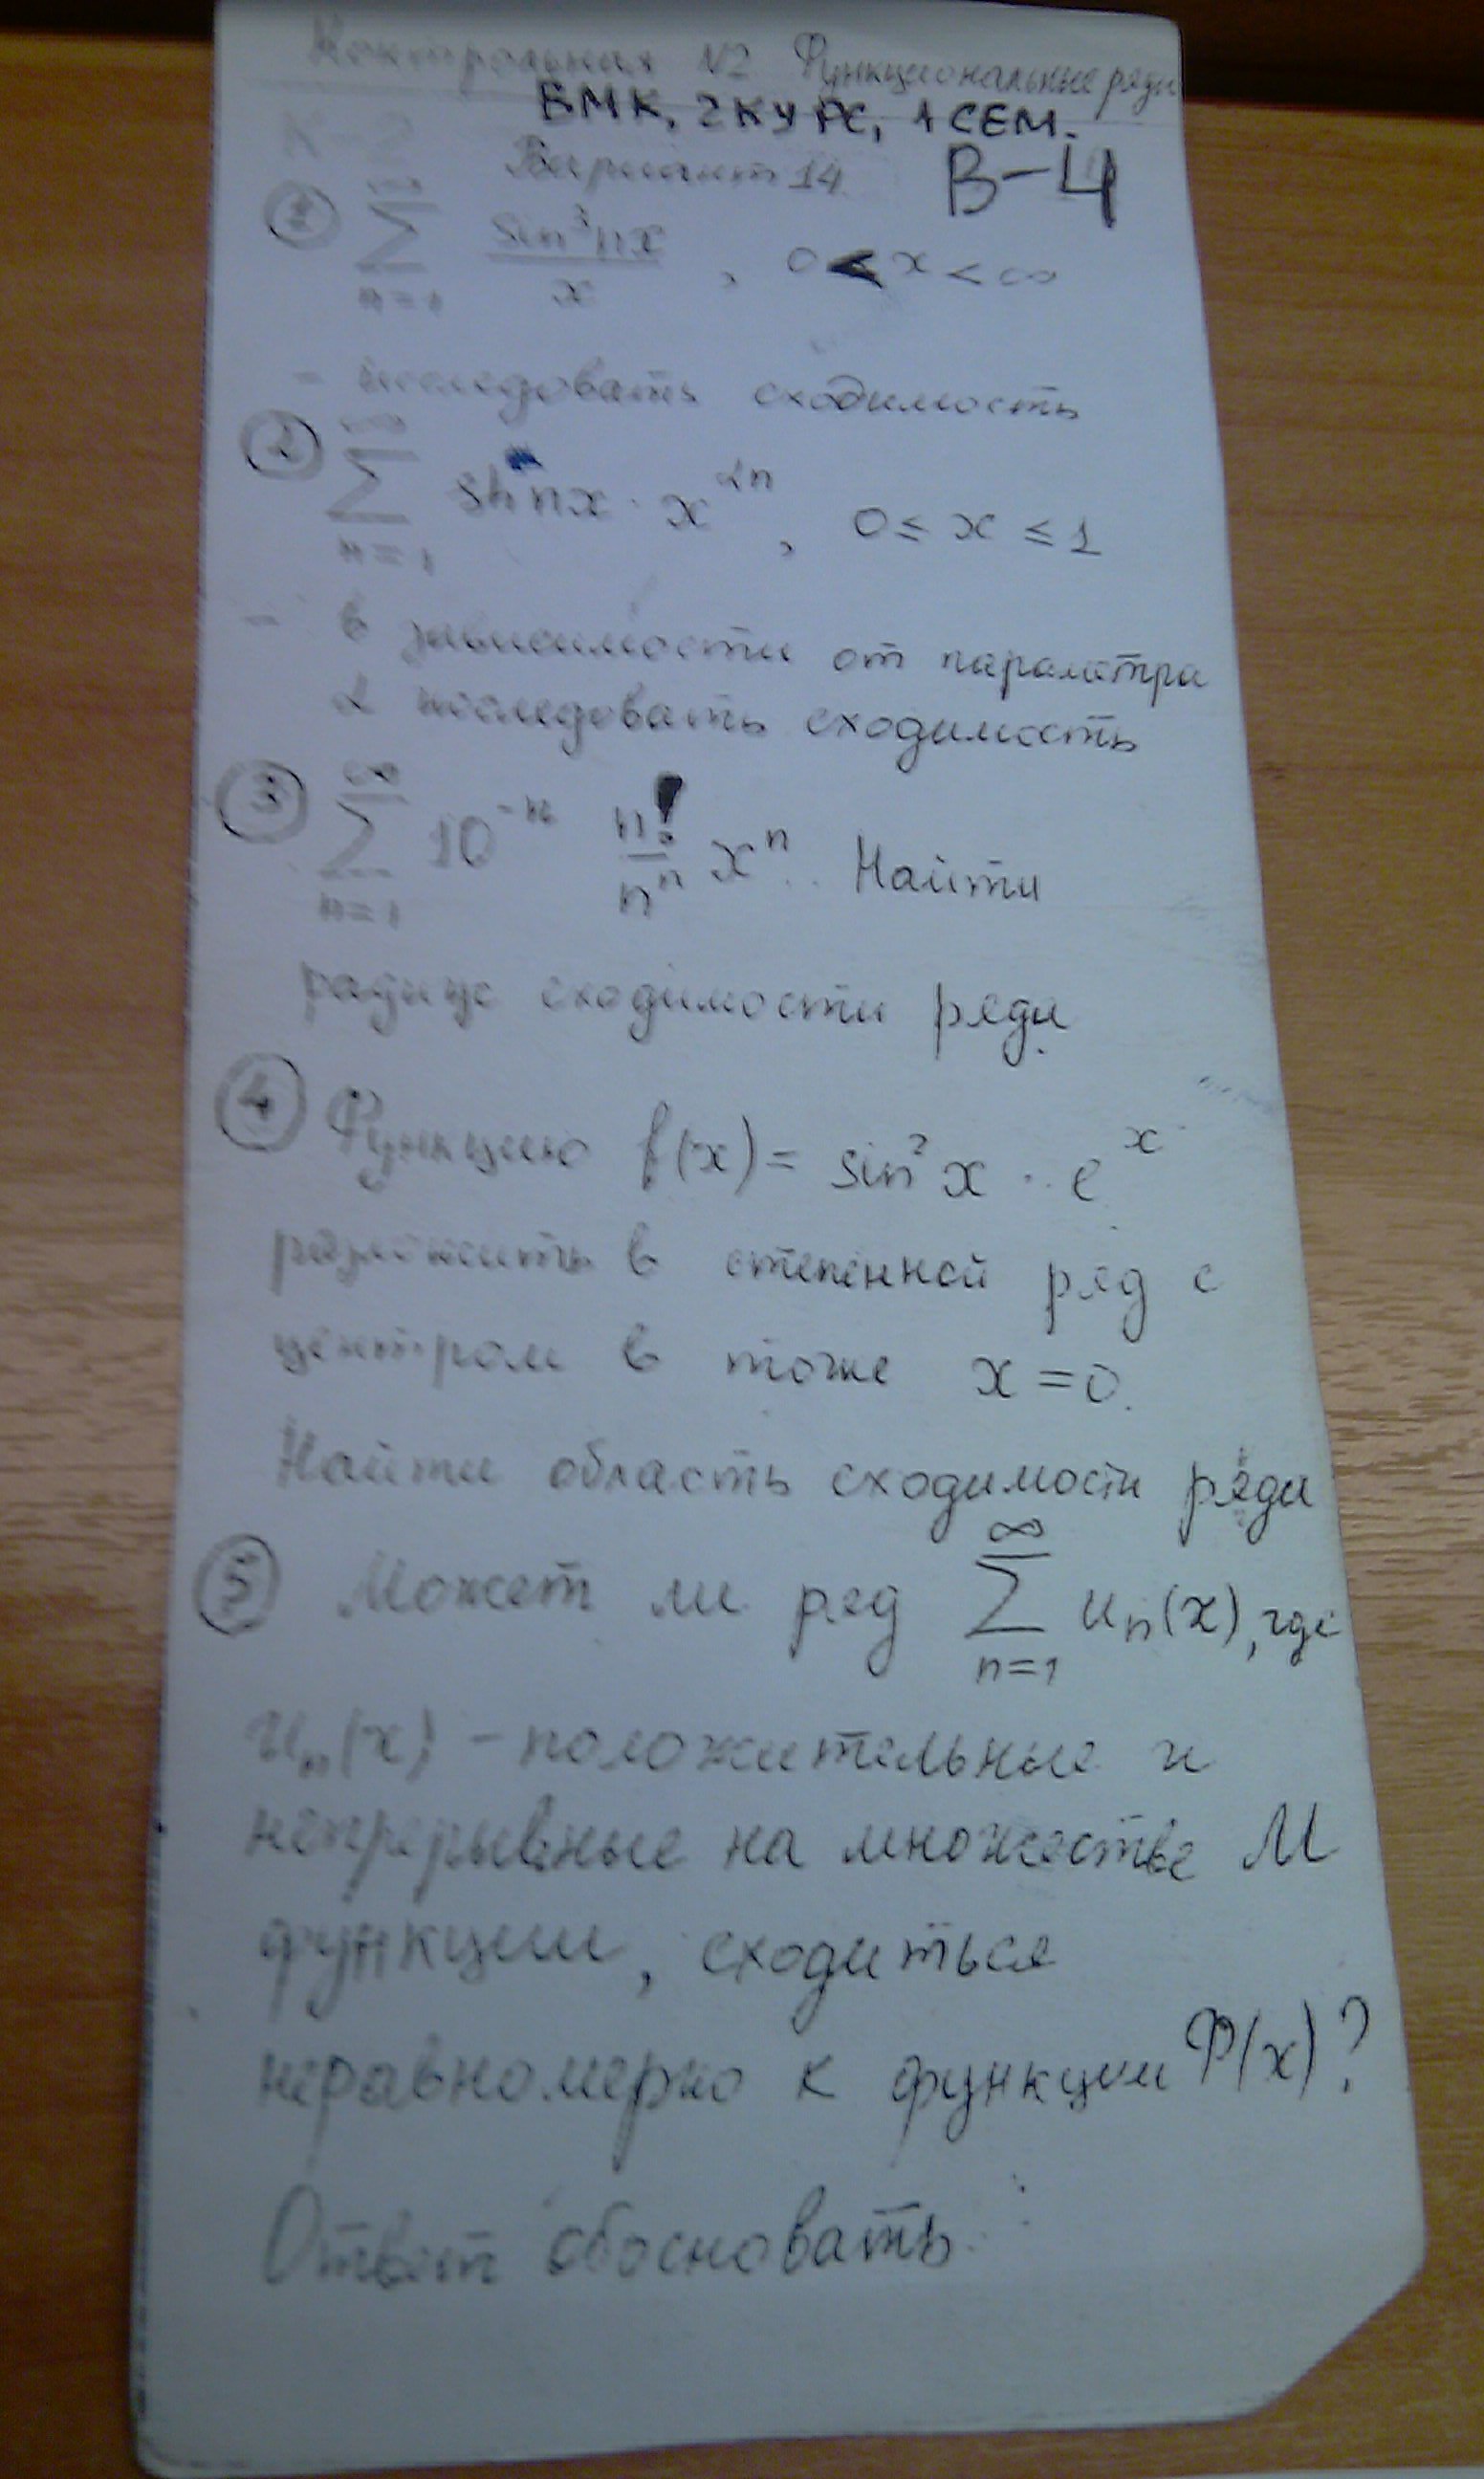 Контрольная №2 Функциональные ряды
ВМК, 2 КУРС, 1 СЕМ.
Вариант 14 В-4
① ∞ ∑ n=1 sin³nx / x , 0 < x < ∞
- исследовать сходимость
② ∞ ∑ n=1 sh nx · x^αn , 0 ≤ x ≤ 1
- в зависимости от параметра
α исследовать сходимость
③ ∞ ∑ n=1 10^-n n!/n^n x^n. Найти
радиус сходимости ряда
④ Функцию f(x) = sin²x · e^x
разложить в степенной ряд с
центром в точке x = 0.
Найти область сходимости ряда
⑤ Может ли ряд ∞ ∑ n=1 uₙ(x), где
uₙ(x) - положительные и
непрерывные на множестве M
функции, сходиться
неравномерно к функции Φ(x)?
Ответ обосновать.